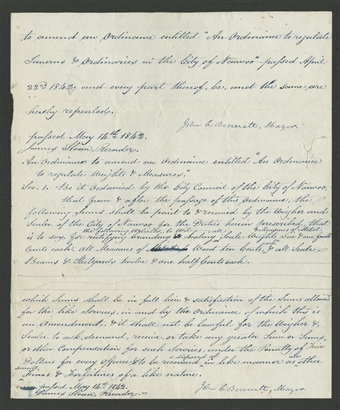 to amend an Ordinance entitled "An Ordinance to regulate
Taverns & Ordinaries in the City of Nauvoo" passed April
22nd 1842 and every part thereof, be, and the same are
hereby repealed.
John C. Bennett, Mayor.
passed May 14th 1842.
James Sloan, Recorder.
An Ordinance to amend an Ordinance entitled "An Ordinance
to regulate Weights & Measures."
Sec. 1. Be it Ordained by the City Council of the City of Nauvoo,
that from & after the passage of this Ordinance, the
following Sums shall be paid to & received by the Weigher and
Sealer of the City of Nauvoo for the Duties herein prescribed, that
is to say, for
Weights six & one quarter
Cents each, all Measures of Wood ten Cents, & all Scale
Beams & Steelyards twelve & one half Cents each.
which Sums shall be in full lieu & satisfaction of the Sums allowed
for the like Services, in and by the Ordinance of which this is
an Amendment. & it shall not be lawful for the Weigher &
Sealer to ask, demand, receive, or take any greater Sum or Sums,
or other Compensation for such Services, under the Penalty of Five
Dollars for every offence, to be recovered in like manner as other
Fines & Forfeitures of a like nature.
passed May 14th 1842.
James Sloan, Recorder.
John C. Bennett, Mayor.